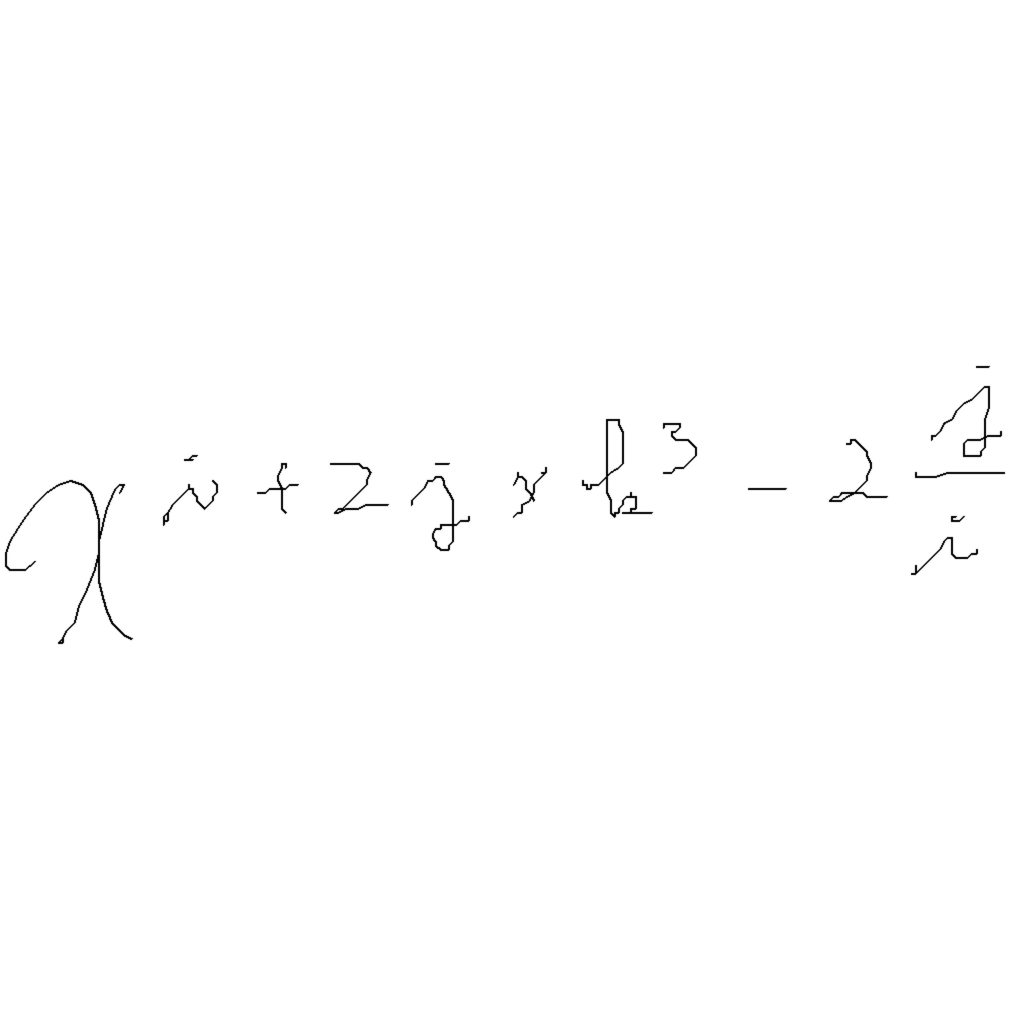 x i + 2 j × k³ - 2 j/i